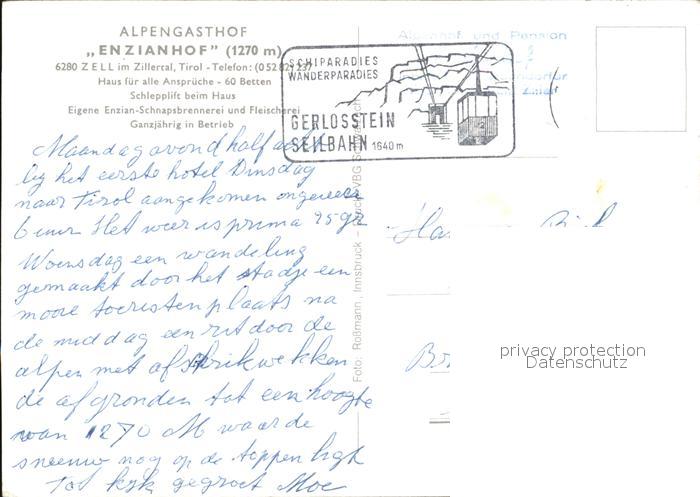 ALPENGASTHOF
„ENZIANHOF" (1270 m)
6280 ZELL im Zillertal, Tirol - Telefon (05282) 237
Haus für alle Ansprüche - 60 Betten
Schlepplift beim Haus
Eigene Enzian-Schnapsbrennerei und Fleischerei
Ganzjährig in Betrieb
Alpenhof und Pension
SCHIPARADIES
WANDERPARADIES
GERLOSSTEIN
SEILBAHN 1640 m
Maandagavond half acht
by het eerste hotel Dinsdag
naar Tirol aangekomen ongeveer
6 uur Het weer is prima 25 gr
Woensdag een wandeling
gemaakt door het stadje een
mooie toeristenplaats na
de middag een rit door de
alpen met afschrikwekken
de afgronden tot een hoogte
van 1270 M waar de
sneeuw nog op de toppen ligt
Tot kyk gegroet Moe
Foto: Roßmann, Innsbruck – Druck: VBG
privacy protection
Datenschutz